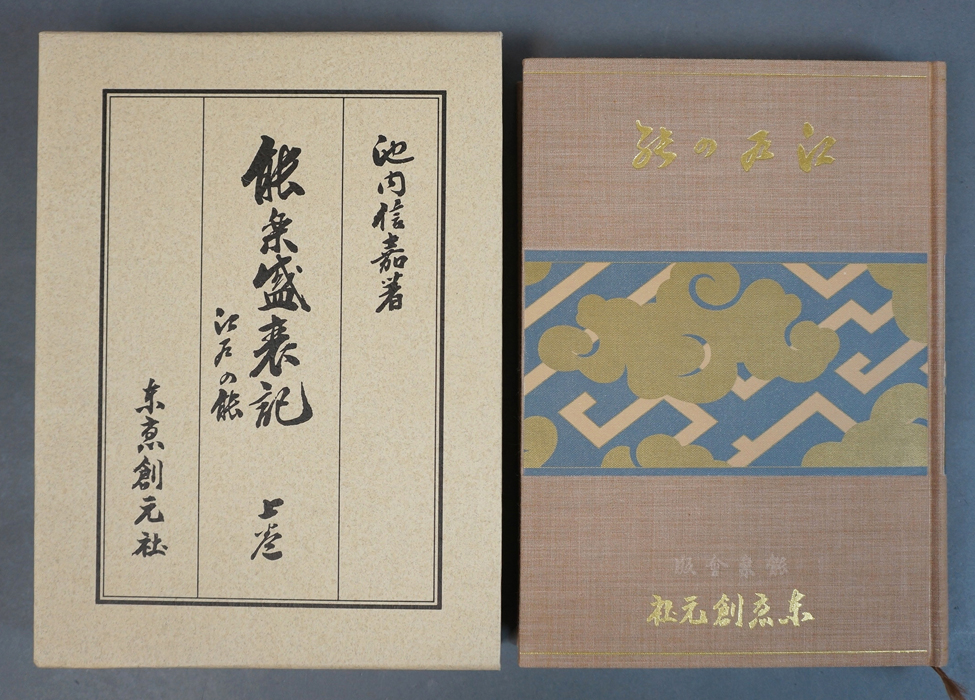 池内信嘉著
能楽盛衰記
江戸の能
上巻
東京創元社
江戸の能
能楽会版
東京創元社